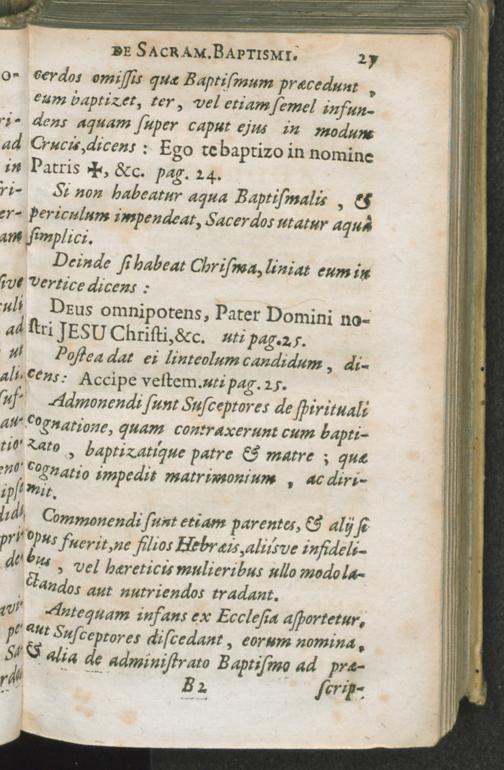 DE SACRAM. BAPTISMI. 27
cerdos omiſſis quæ Baptiſmum præcedunt,
eum baptizet, ter, vel etiam ſemel infun-
dens aquam ſuper caput ejus in modum
Crucis, dicens: Ego te baptizo in nomine
Patris ✠, &c. pag. 24.
Si non habeatur aqua Baptiſmalis, &
periculum impendeat, Sacerdos utatur aquâ
ſimplici.
Deinde ſi habeat Chriſma, liniat eum in
vertice dicens:
DEUS omnipotens, Pater Domini no-
ſtri JESU Chriſti, &c. uti pag. 25.
Poſtea dat ei linteolum candidum, di-
cens: Accipe veſtem. uti pag. 25.
Admonendi ſunt Suſceptores de ſpirituali
cognatione, quam contraxerunt cum bapti-
zato, baptizatíque patre & matre; quæ
cognatio impedit matrimonium, ac diri-
mit.
Commonendi ſunt etiam parentes, & alij ſi
opus fuerit, ne filios Hebræis, aliiſve infideli-
bus, vel hæreticis mulieribus ullo modo la-
ctandos aut nutriendos tradant.
Antequam infans ex Eccleſia aſportetur,
aut Suſceptores diſcedant, eorum nomina,
& alia de adminiſtrato Baptiſmo ad præ-
B2 ſcrip-